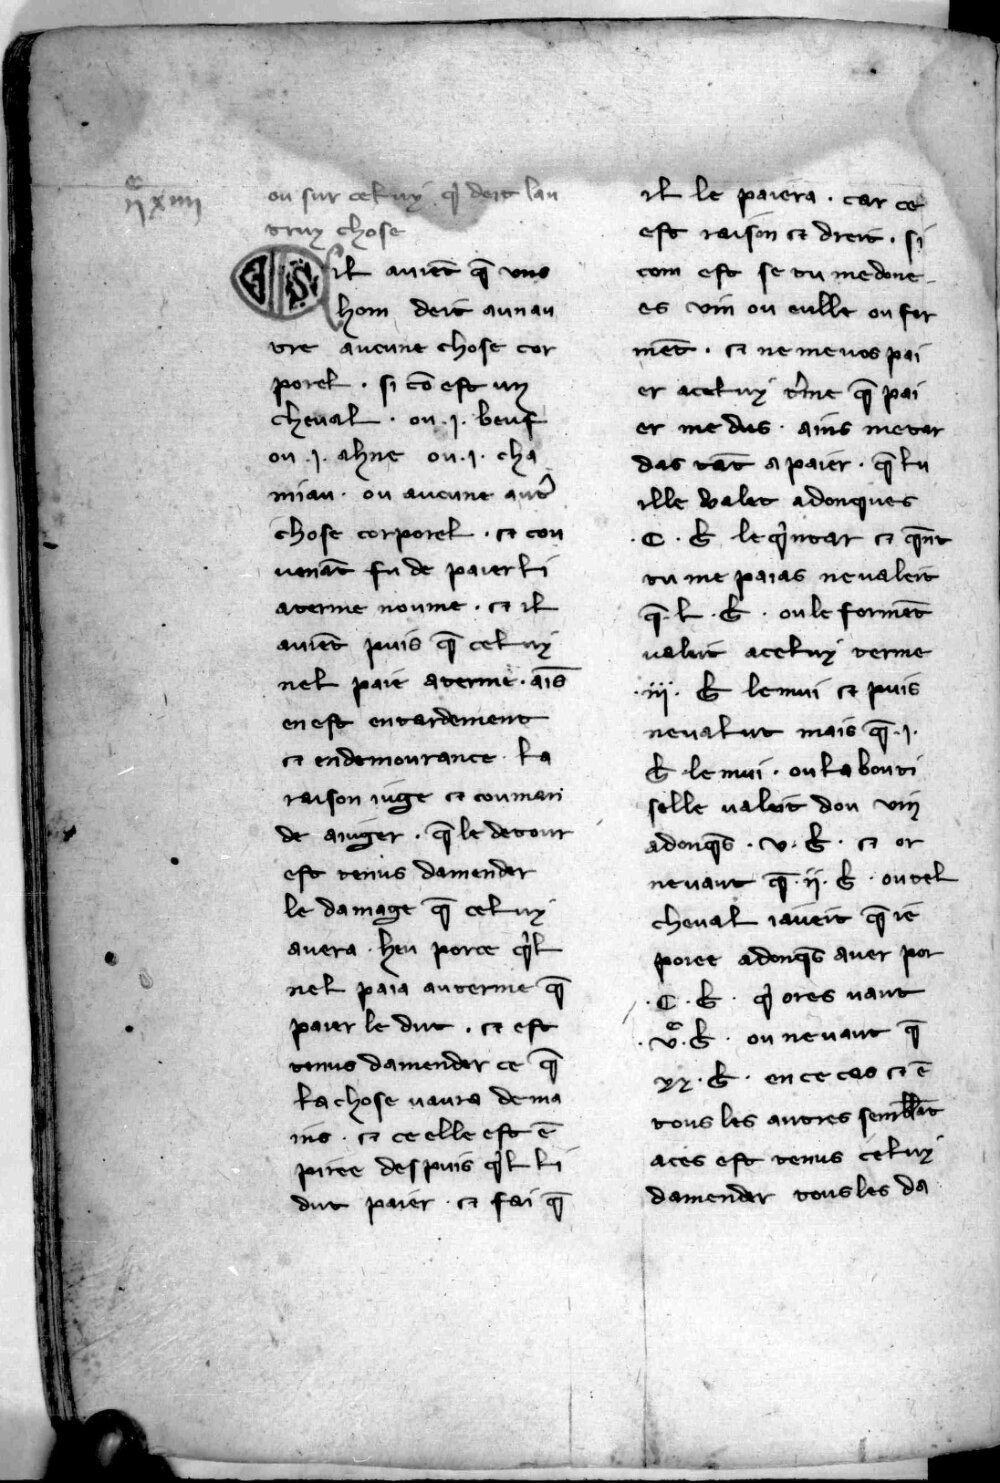 ijc xiiij
ou sur celuy q̇ deit lau
truy chose
Sil auiēt q̄ uns
hom deit aun au
tre aucune chose cor
porel . si cō est un
cheual . ou .j. beuf
ou .j. ahne ou .j. cha
miau . ou aucune autr̄
chose corporel . et cou
uenāt fu de paier li
aterme noume . et il
auiēt puis q̄ celuy
nel paie aterme . aīs
en est entardement
et endemourance . La
raison iuge et couman
de aiuger . q̄ le detour
est tenus damender
le damage q̄ celuy
auera . heu porce q̇l
nel paia auterme q̄
paier le dut . et est
tenus damender ce q̄
la chose uaura dema
ins . et ce elle est ē
piree des puis q̇l li
dut paier . et fai q̄
il le paiera . car ce
est raison et dreit . si
com est se tu me done
es uin ou eulle ou for
mēt . et ne me uos pai
er aceluy t̄me q̄ pai
er me dus . ains me tar
das tāt a paier . q̄ lu
ille ualet adonques
. C . ƀ le q̇ntar et q̄nt
tu me paias ne ualeit
q̄ . l . ƀ . ou le formēt
ualut aceluy terme
. iij . ƀ le mui et puis
ne ualut mais q̄ . j .
ƀ . le mui . ou la bouti
selle ualeit dou uin
adonq̄s . v . ƀ . et or
ne uaut q̄ . ij . ƀ . ou tel
cheual i aueit q̄ ie
poiee adonq̄s auer por
. C . ƀ . q̇ ores uaut
. vc . ƀ . ou ne uaut q̄
xx . ƀ . en ce cas et ē
tous les autres semblāt
aces est tenus celuy
damender tous les da